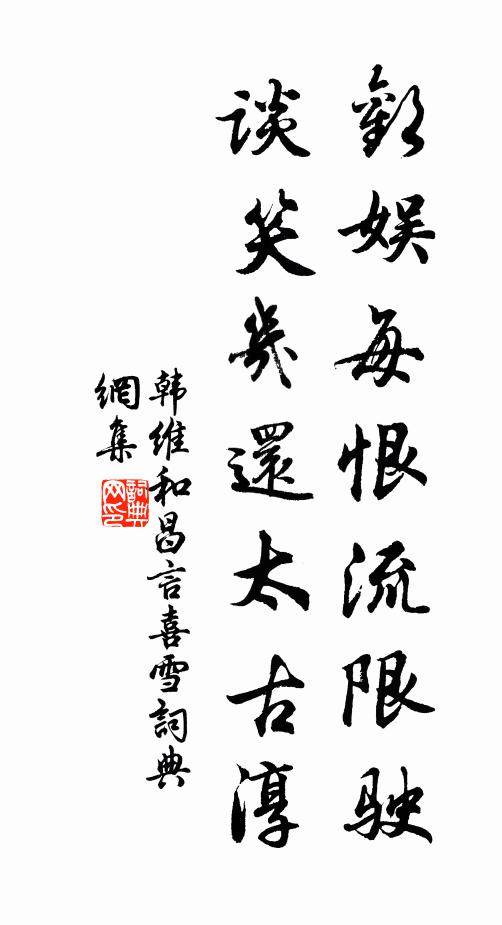 歡娱每恨流限驶
談笑幾還太古淳
韩维和昌言喜雪詞典
網集
詞典网印